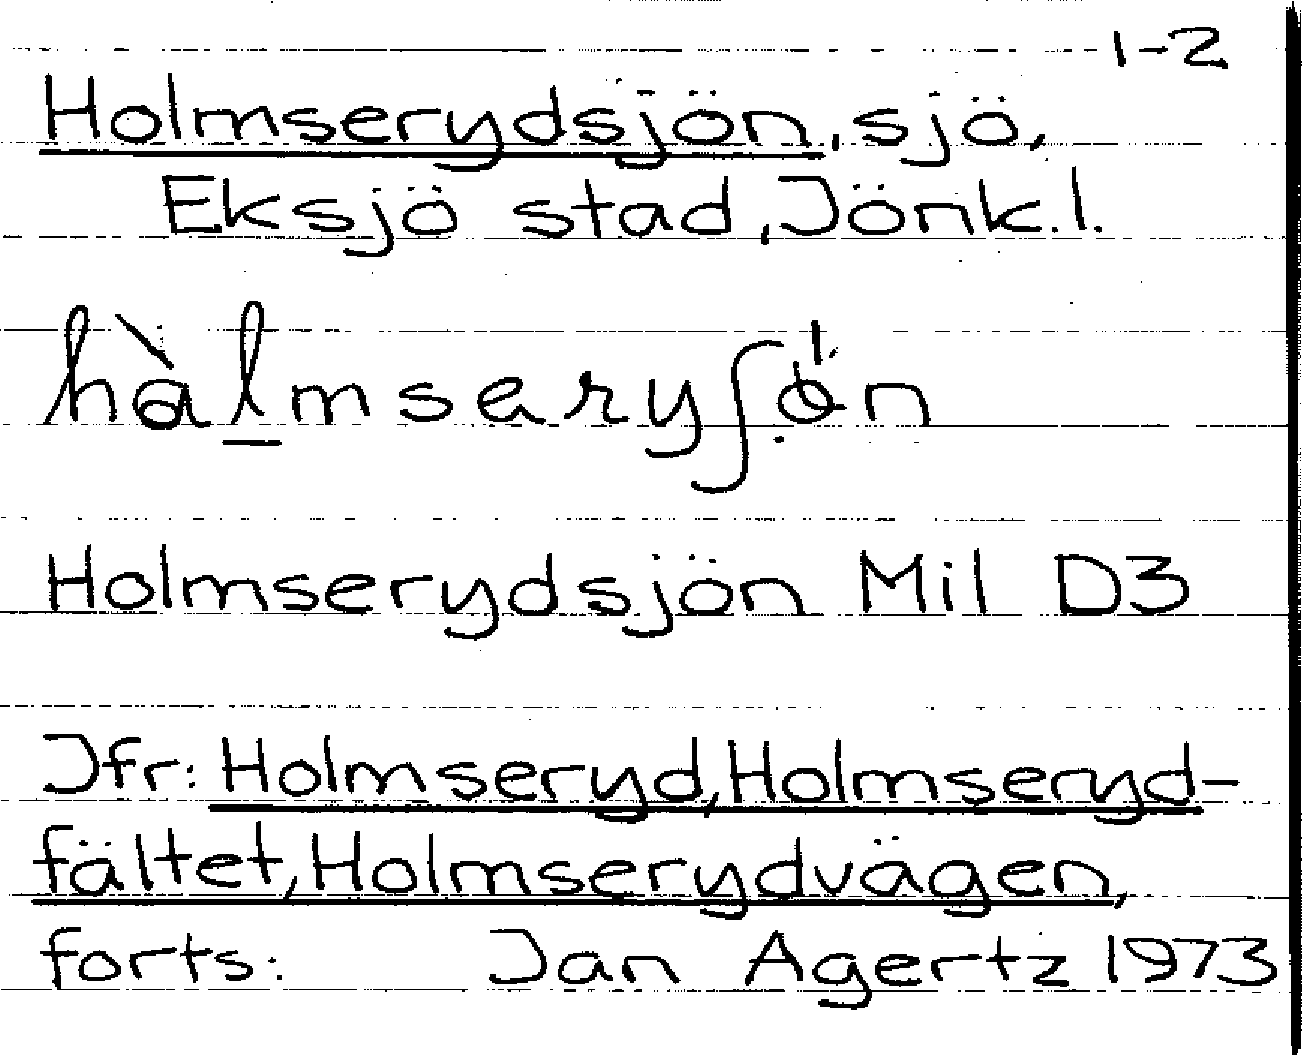 1-2
Holmserydsjön, sjö,
Eksjö stad, Jönk.l.
hålmseryʃön
Holmserydsjön Mil D3
Jfr: Holmseryd, Holmseryd-
fältet, Holmserydvägen,
forts: Jan Agertz 1973